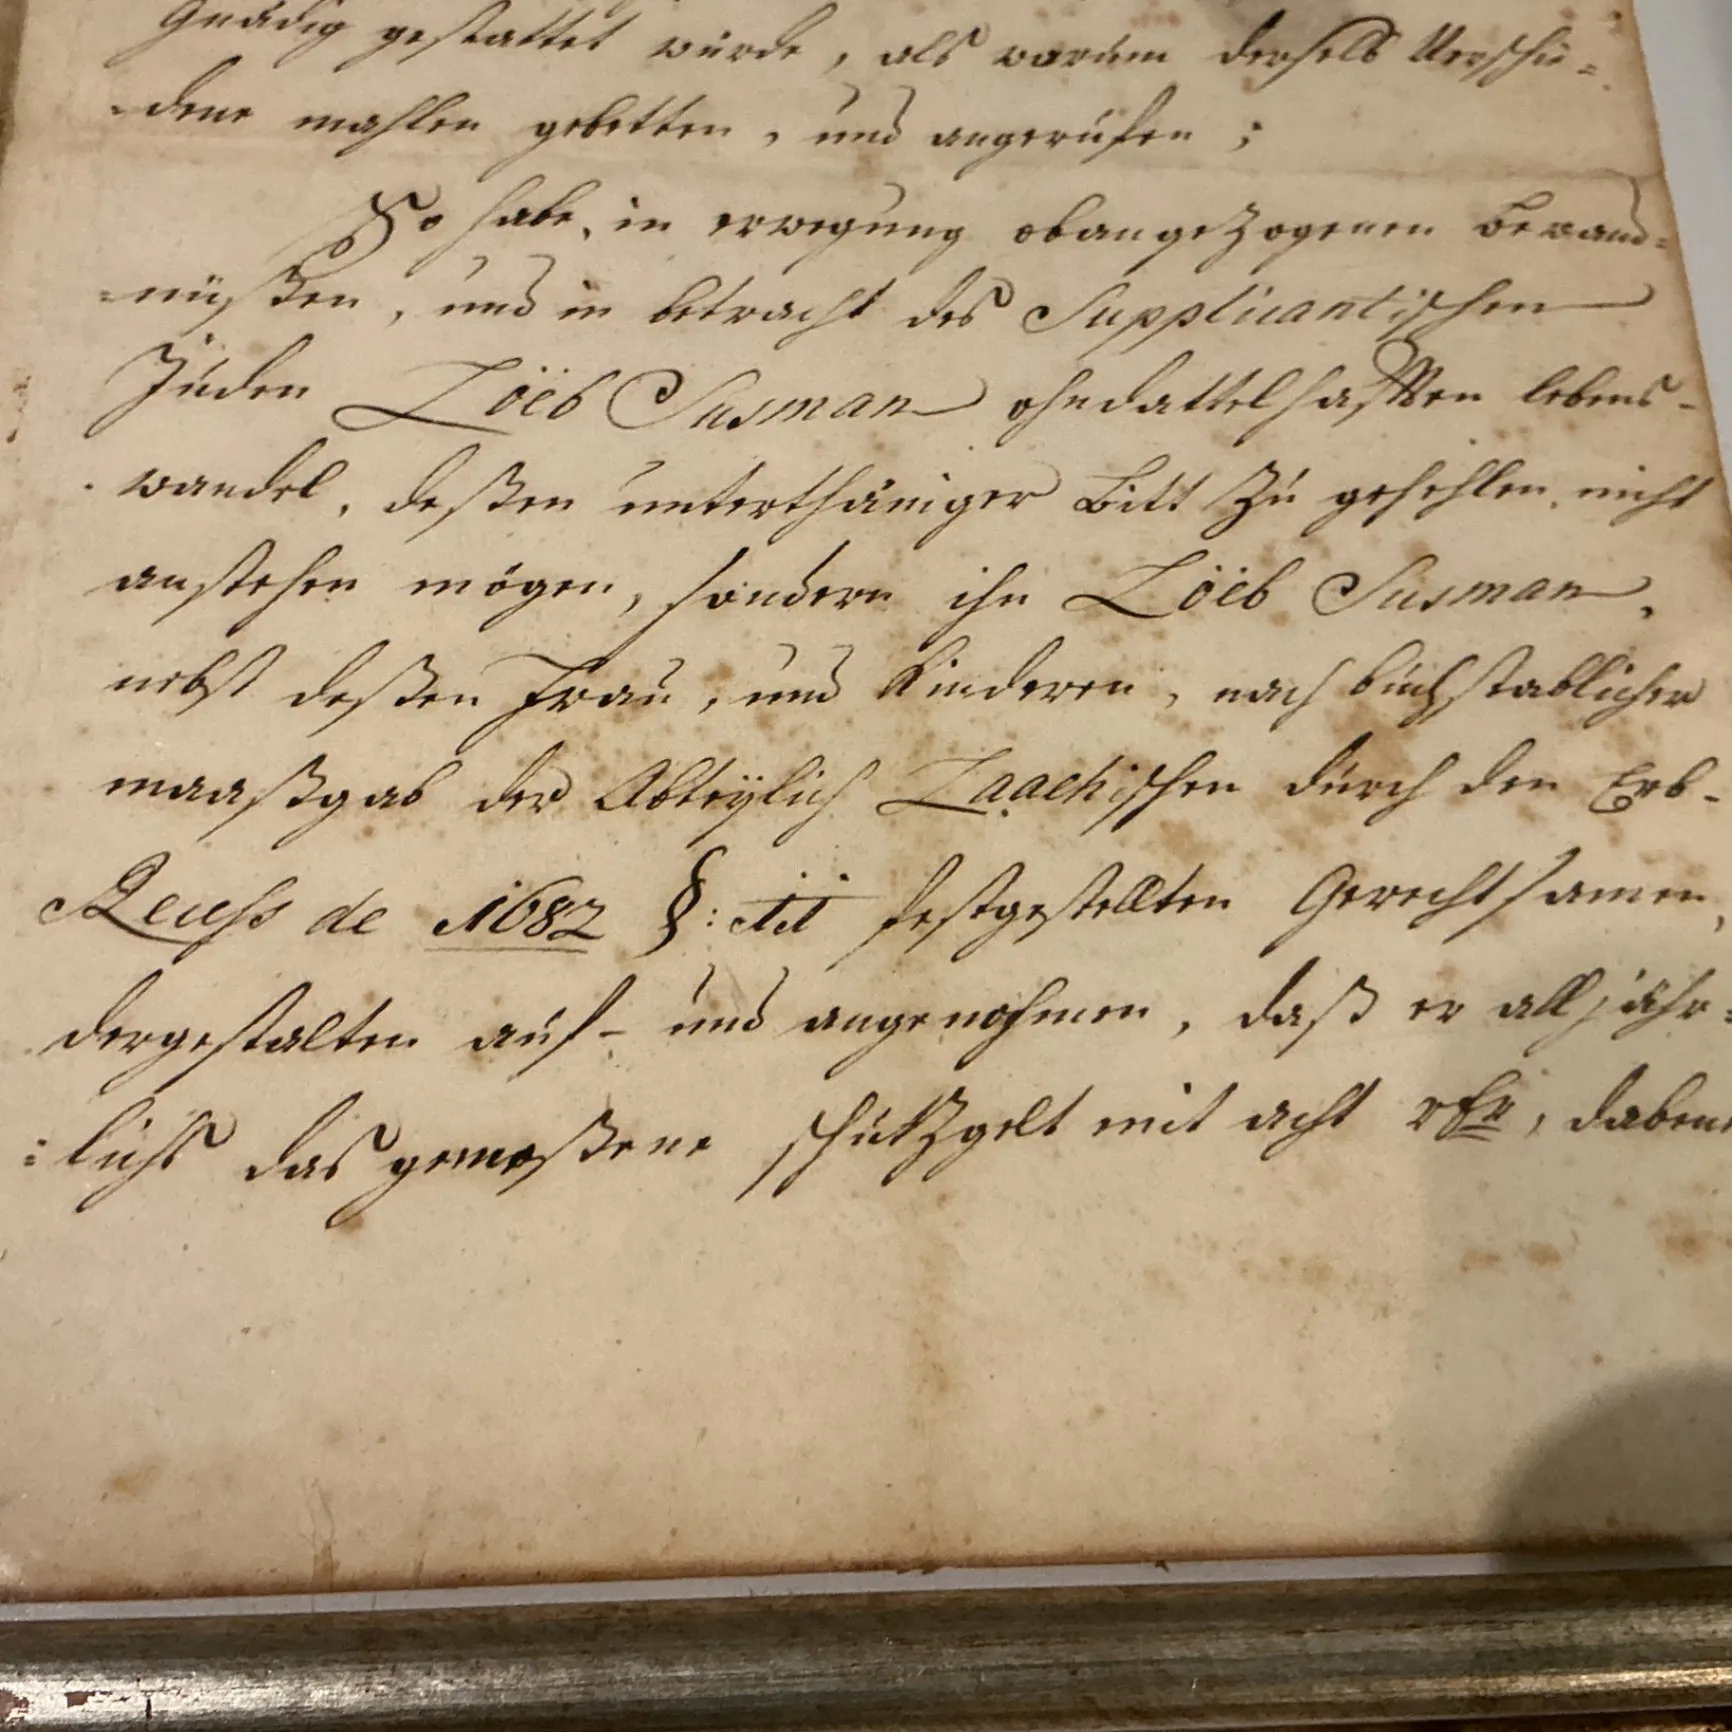 Gnädig gestattet würde, als warum derselb Verschie=
=dene mahlen gebetten, und angerufen;
So habe, in erwegung obangezogenen bewand=
=nüßen, und in betracht des Supplicantischen
Juden Löëb Susman ohndattelhafften lebens-
wandel, deßen unterthäniger Bitt zu gefehlen nicht
anstehen mögen, sondern ihn Löëb Susman,
nebst deßen Frau, und Kinderen, nach buchstablicher
maaßgab der Abteÿlich Laachischen durch den Erb-
Recess de 1682 §: II festgestellten Gerechtsamen,
dergestalten auf- und angenohmen, daß er alljähr=
=lichs das gemeßene schutzgelt mit acht rthr, dabene